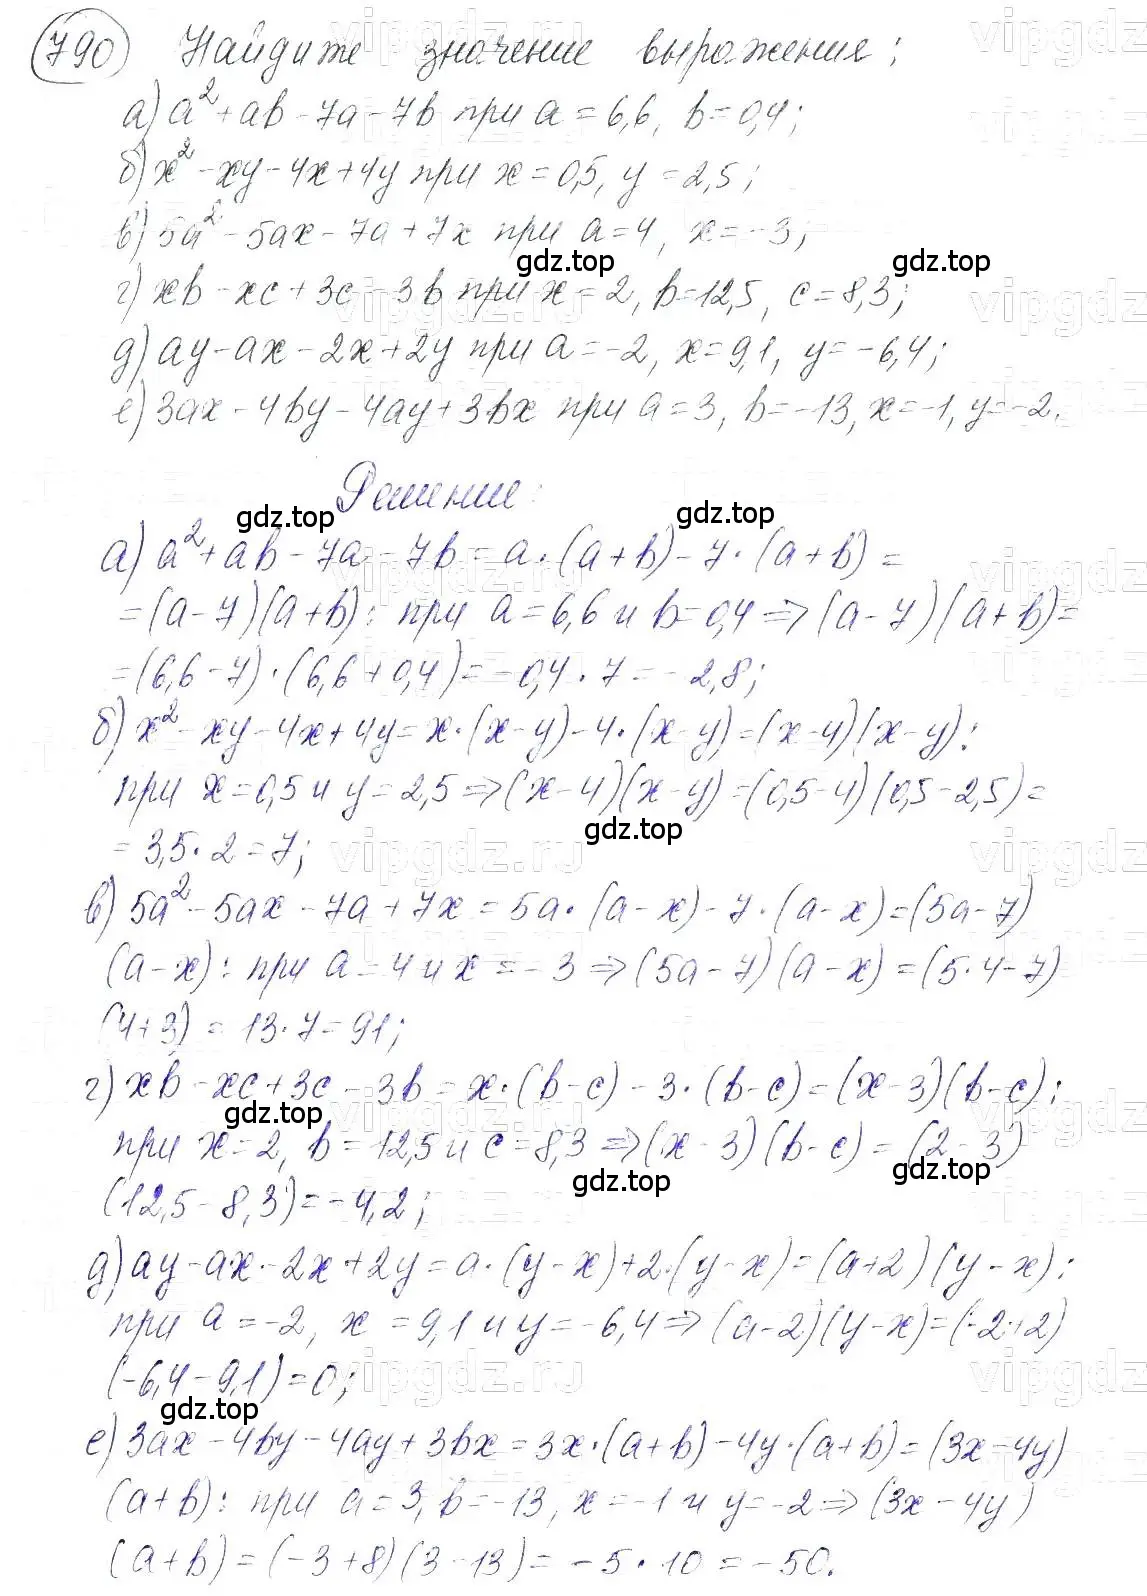 790 Найдите значение выражения:
а) a² + ab - 7a - 7b при a = 6,6, b = 0,4;
б) x² - xy - 4x + 4y при x = 0,5, y = 2,5;
в) 5a² - 5ax - 7a + 7x при a = 4, x = -3;
г) xb - xc + 3c - 3b при x = 2, b = 12,5, c = 8,3;
д) ay - ax - 2x + 2y при a = -2, x = 9,1, y = -6,4;
е) 3ax - 4by - 4ay + 3bx при a = 3, b = -13, x = -1, y = -2.
Решение:
а) a² + ab - 7a - 7b = a · (a + b) - 7 · (a + b) =
= (a - 7)(a + b): при a = 6,6 и b = 0,4 => (a - 7)(a + b) =
= (6,6 - 7) · (6,6 + 0,4) = -0,4 · 7 = -2,8;
б) x² - xy - 4x + 4y = x · (x - y) - 4 · (x - y) = (x - 4)(x - y):
при x = 0,5 и y = 2,5 => (x - 4)(x - y) = (0,5 - 4)(0,5 - 2,5) =
= 3,5 · 2 = 7;
в) 5a² - 5ax - 7a + 7x = 5a · (a - x) - 7 · (a - x) = (5a - 7)
(a - x): при a = 4 и x = -3 => (5a - 7)(a - x) = (5·4 - 7)
(4 + 3) = 13 · 7 = 91;
г) xb - xc + 3c - 3b = x · (b - c) - 3 · (b - c) = (x - 3)(b - c):
при x = 2, b = 12,5 и c = 8,3 => (x - 3)(b - c) = (2 - 3)
(12,5 - 8,3) = -4,2;
д) ay - ax - 2x + 2y = a · (y - x) + 2 · (y - x) = (a + 2)(y - x):
при a = -2, x = 9,1 и y = -6,4 => (a - 2)(y - x) = (-2 + 2)
(-6,4 - 9,1) = 0;
е) 3ax - 4by - 4ay + 3bx = 3x · (a + b) - 4y · (a + b) = (3x - 4y)
(a + b): при a = 3, b = -13, x = -1 и y = -2 => (3x - 4y)
(a + b) = (-3 + 8)(3 - 13) = -5 · 10 = -50.
gdz.top
gdz.top
gdz.top
gdz.top
gdz.top
gdz.top
gdz.top
gdz.top
vipgdz.ru
vipgdz.ru
vipgdz.ru
vipgdz.ru
vipgdz.ru
vipgdz.ru